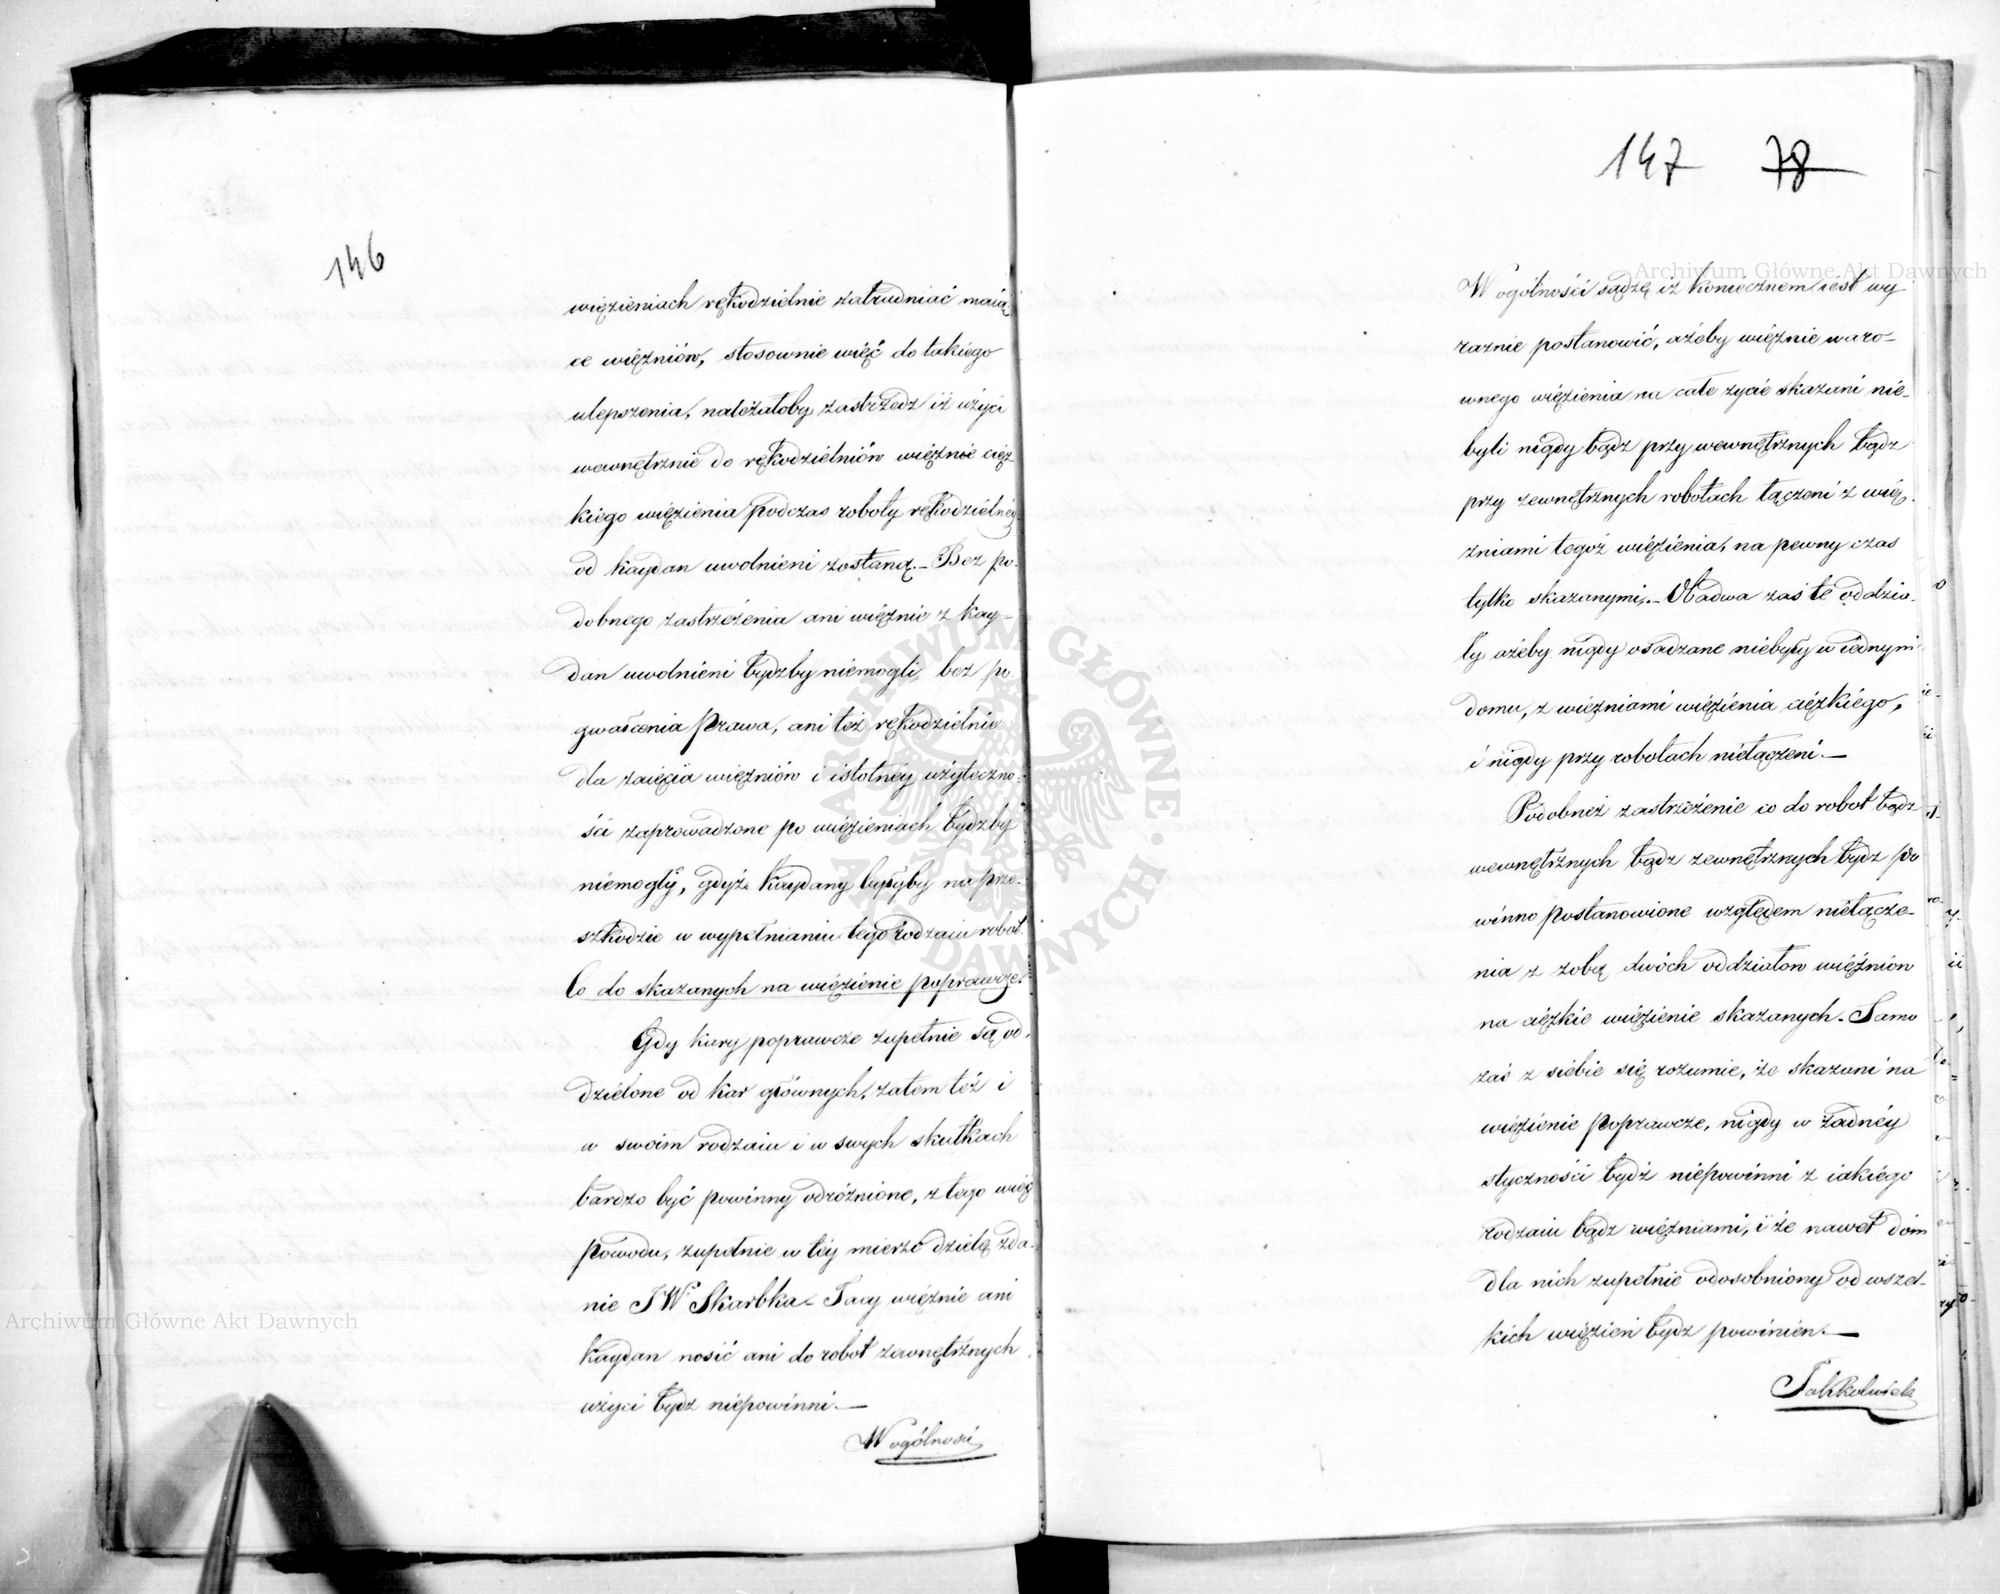 146
więzieniach rękodzielnie zatrudniać maią
ce więźniów, stosownie więć do takiego
ulepszenia, należałoby zastrzedz iż użyci
wewnętrznie do rękodzielniów więźnie cięż
kiego więzienia podczas roboty rękodzielnéy
od kaydan uwolnieni zostaną. – Bez po-
dobnego zastrzeżenia ani więźnie z kay-
dan uwolnieni bydzby niemogli, bez po
gwałcenia Prawa, ani też rękodzielnie
dla zaięcia więźniów i istotnéy użyteczno-
ści zaprowadzone po więzieniach bydzby
niemogły, gdyż kaydany byłyby na prze-
szkodzie w wypełnianiu tego rodzaiu robot.
Co do skazanych na więzienie poprawcze.
Gdy kary poprawcze zupełnie są od-
dzielone od kar głównych, zatem też i
w swoim rodzaiu i w swych skutkach
bardzo być powinny odróżnione, z tego więc
powodu, zupełnie w téy mierze dzielę zda-
nie JW. Skarbka – Tacy więźnie ani
kaydan nosić ani do robot zewnętrznych
użyci bydz niepowinni. –
W ogólności
147 78
W ogólności sądzę iż koniecznem iest wy
raznie postanowić, ażeby więźnie waro-
wnego więzienia na całe zycie skazani nie-
byli nigdy bądz przy wewnętrznych bądz
przy zewnętrznych robotach łączeni z wię-
zniami tegoż więzienia, na pewny czas
tylko skazanymi. – Obadwa zaś te oddzia-
ły ażeby nigdy osadzane niebyły w iednym
domu, z więzniami więzienia cięzkiego,
i nigdy przy robotach niełączeni. –
Podobneż zastrzeżenie co do robot bądz
wewnętrznych bądz zewnętrznych bydz po
winno postanowione względem niełącze-
nia z sobą dwóch oddziałow więźniow
na cięzkie więzienie skazanych. Samo
zaś z siebie się rozumie, że skazani na
więzienie poprawcze, nigdy w żadnéy
styczności bydź niepowinni z iakiego
rodzaiu bądz więźniami, i że nawet dóm
dla nich zupełnie odosobniony od wszel-
kich więzień bydz powinien. –
Jakkolwiek
Archiwum Główne Akt Dawnych
Archiwum Główne Akt Dawnych
ARCHIWUM GŁÓWNE AKT DAWNYCH